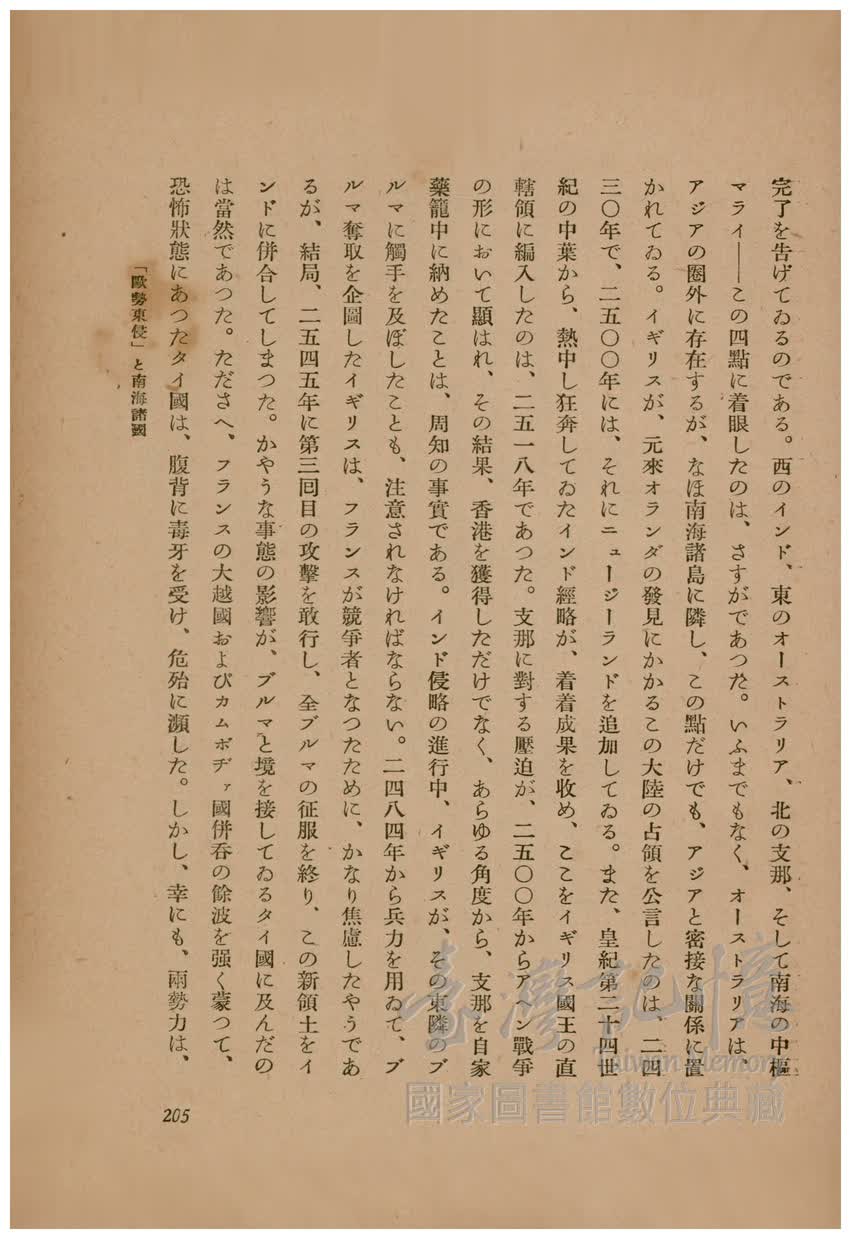 完了を告げてゐるのである。西のインド、東のオーストラリア、北の支那、そして南海の中樞
マライ——この四點に着眼したのは、さすがであつた。いふまでもなく、オーストラリアは、
アジアの圈外に存在するが、なほ南海諸島に隣し、この點だけでも、アジアと密接な關係に置
かれてゐる。イギリスが、元來オランダの發見にかかるこの大陸の占領を公言したのは、二四
三〇年で、二五〇〇年には、それにニュージーランドを追加してゐる。また、皇紀第二十四世
紀の中葉から、熱中し狂奔してゐたインド經略が、着着成果を收め、ここをイギリス國王の直
轄領に編入したのは、二五一八年であつた。支那に對する壓迫が、二五〇〇年からアヘン戰爭
の形において顯はれ、その結果、香港を獲得しただけでなく、あらゆる角度から、支那を自家
藥籠中に納めたことは、周知の事實である。インド侵略の進行中、イギリスが、その東隣のブ
ルマに觸手を及ぼしたことも、注意されなければならない。二四八四年から兵力を用ゐて、ブ
ルマ奪取を企圖したイギリスは、フランスが競爭者となつたために、かなり焦慮したやうであ
るが、結局、二五四五年に第三回目の攻擊を敢行し、全ブルマの征服を終り、この新領土をイ
ンドに併合してしまつた。かやうな事態の影響が、ブルマと境を接してゐるタイ國に及んだの
は當然であつた。たださへ、フランスの大越國およびカムボヂァ國併呑の餘波を强く蒙つて、
恐怖狀態にあつたタイ國は、腹背に毒牙を受け、危殆に瀕した。しかし、幸にも、兩勢力は、
「歐勢東侵」と南海諸國
205
臺灣記憶
Taiwan Memory
國家圖書館數位典藏